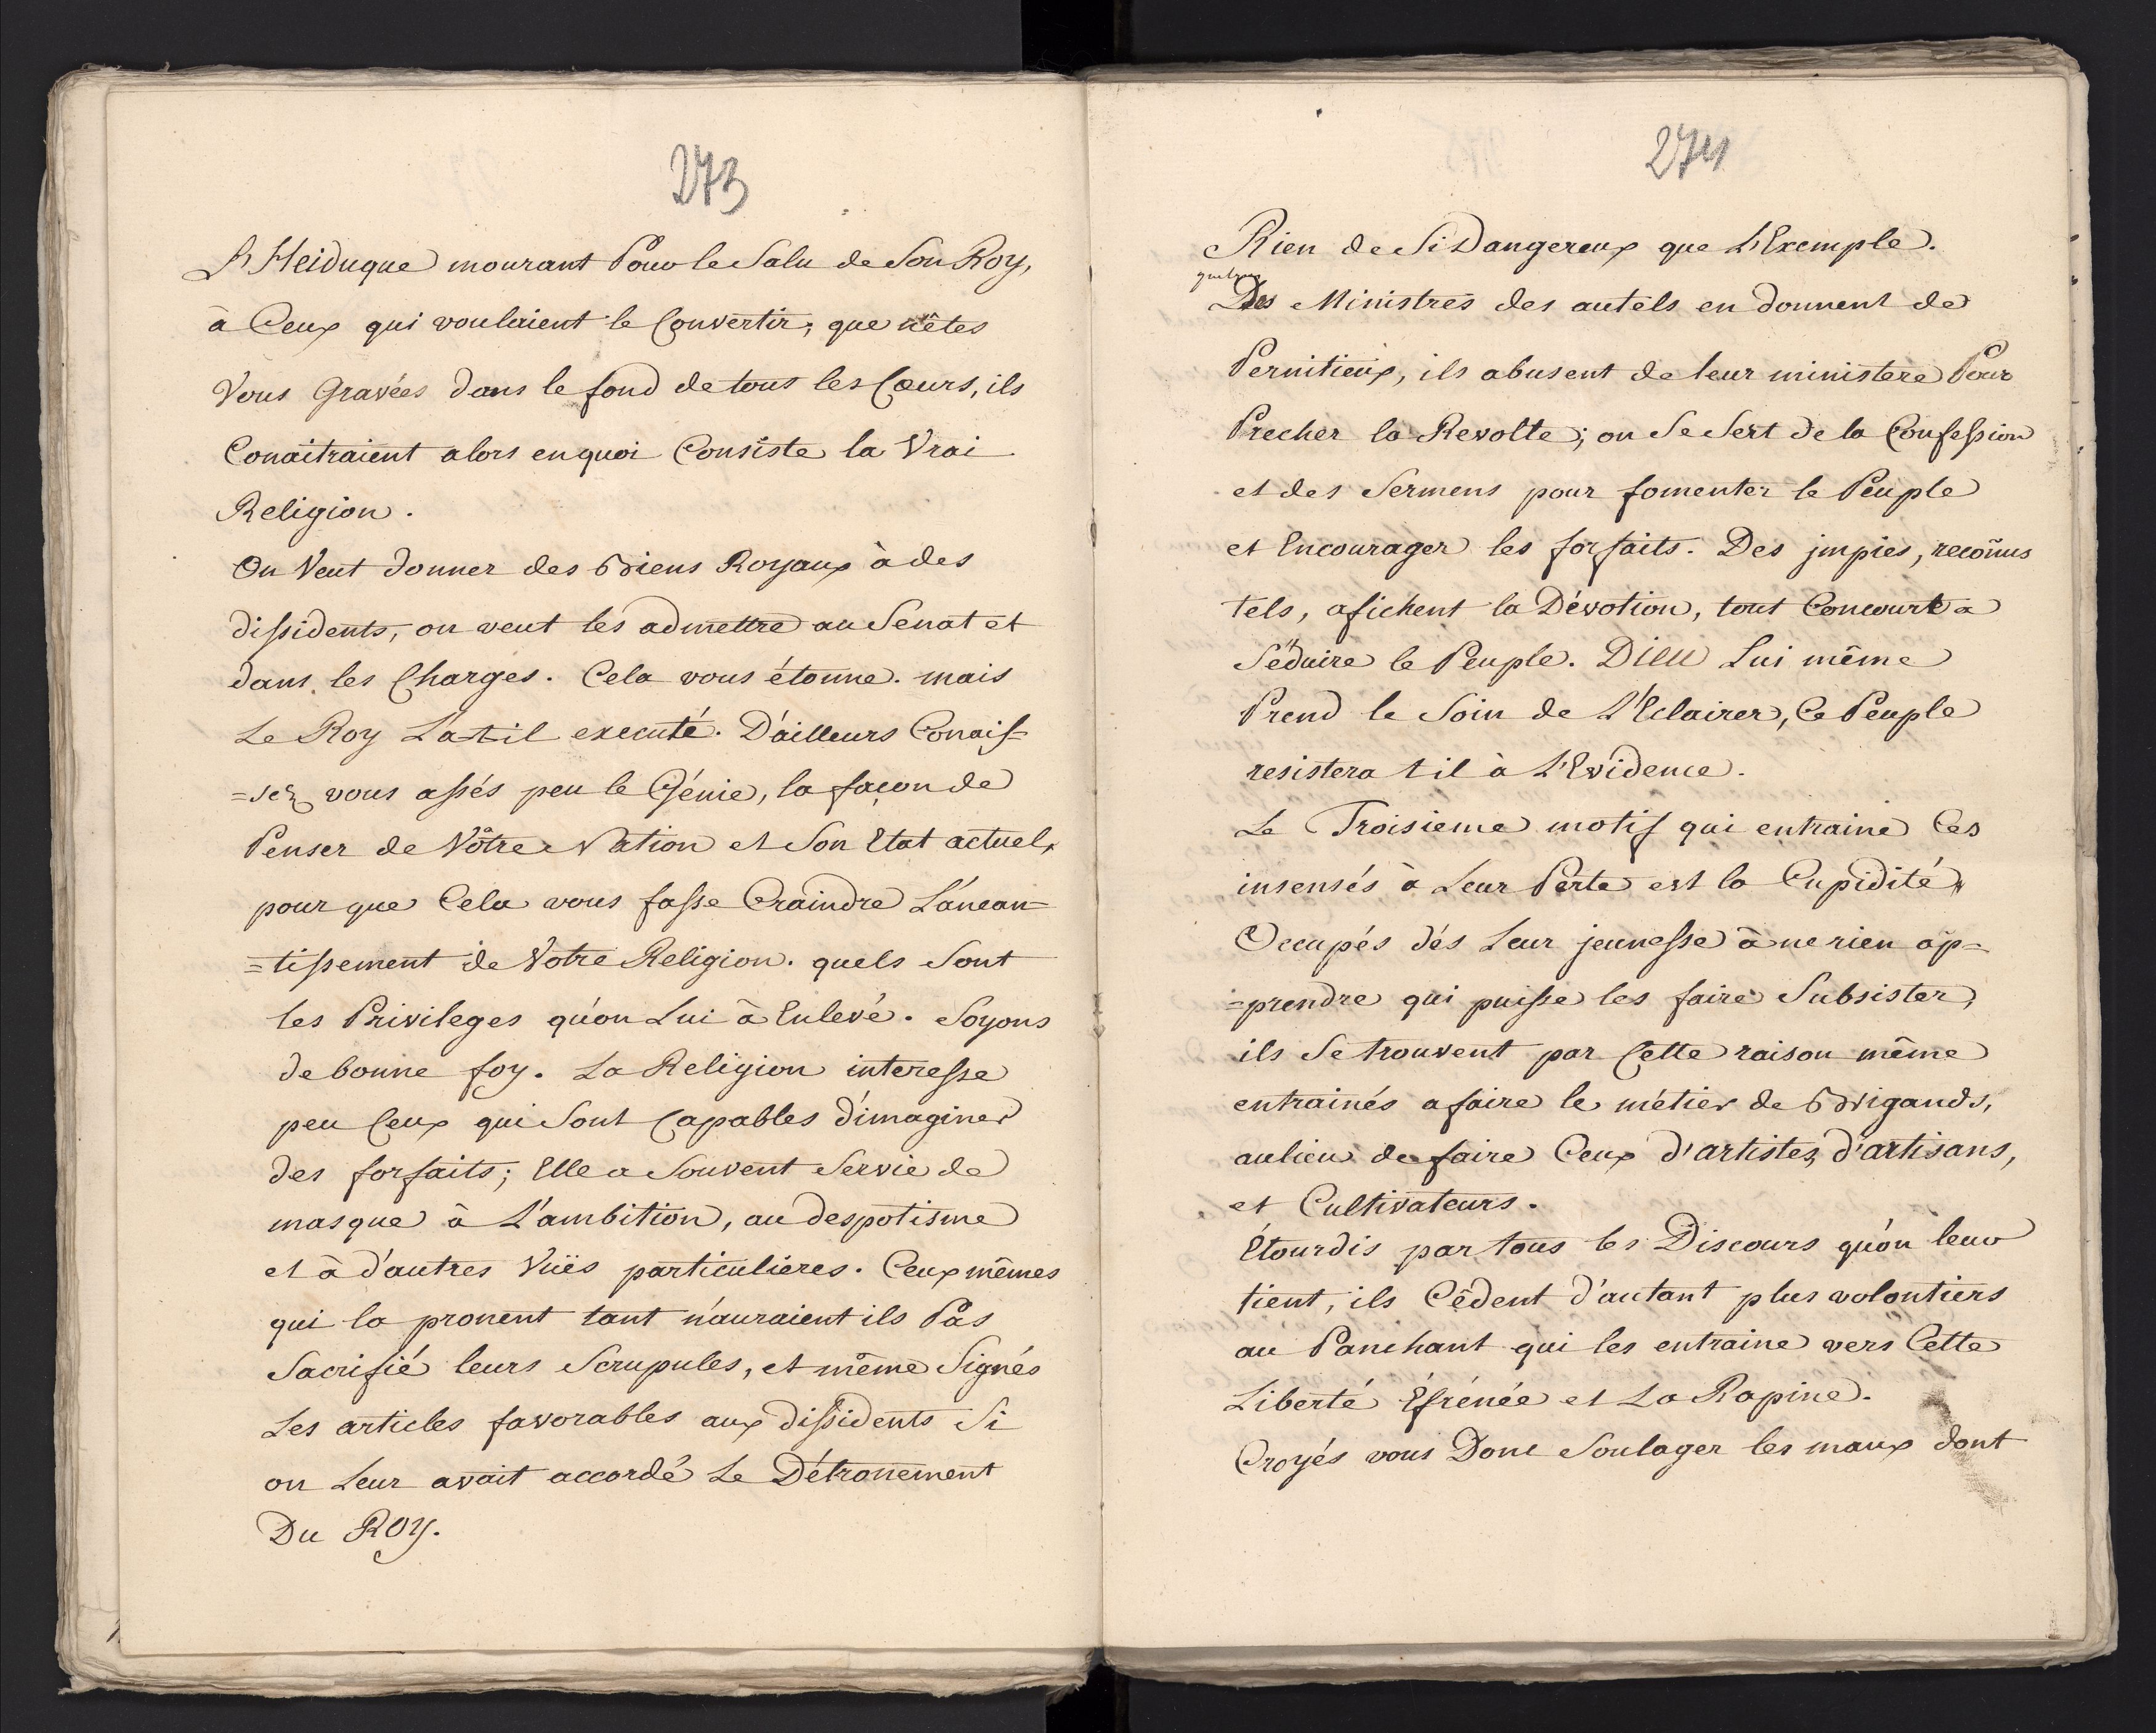 273
L'Heiduque mourant Pour le Salu de Son Roy,
à Ceux qui voulaient le Convertir, que n'êtes
Vous Gravées dans le fond de tous les Cœurs, ils
Conaitraient alors en quoi Consiste la Vrai
Religion.
On Veut donner des Biens Royaux à des
dissidents, on veut les admettre au Senat et
dans les Charges. Cela vous étonne. mais
Le Roy L'at-il executé. D'ailleurs Conais=
=sez vous assés peu le Génie, la façon de
Penser de Nôtre Nation et Son Etat actuel,
pour que Cela vous fasse Craindre L'anean=
=tissement de Votre Religion. quels Sont
les Privileges qu'on Lui à Enlevé. Soyons
de bonne foy. La Religion interesse
peu Ceux qui Sont Capables d'imaginer
des forfaits; Elle a Souvent Servie de
masque à L'ambition, au despotisme
et à d'autres Vües particulieres. Ceux mêmes
qui la pronent tant n'auraient ils Pas
Sacrifié leurs Scrupules, et même Signés
Les articles favorables aux dissidents Si
on Leur avait accordé Le Détronement
Du ROY.
274
Rien de Si Dangereux que L'Exemple.
quelques
Des Ministres des autels en donnent de
Pernitieux, ils abusent de leur ministere Pour
Precher la Revolte; on Se Sert de la Confession
et des Sermens pour fomenter le Peuple
et Encourager les forfaits. Des impies, recoñus
tels, afichent la Dévotion, tout Concourt a
Séduire le Peuple. DIEU Lui même
Prend le Soin de L'Eclairer, Ce Peuple
resistera t il à L'Evidence.
Le Troisieme motif qui entraine Ces
insensés à Leur Perte est la Cupidité,
Occupés dés Leur jeunesse à ne rien ap=
=prendre qui puisse les faire Subsister,
ils Se trouvent par Cette raison même
entrainés a faire le métier de Brigands,
au lieu de faire Ceux d'artistes, d'artisans,
et Cultivateurs.
Étourdis par tous les Discours qu'on leur
tient, ils Cèdent d'autant plus volontiers
au Panchant qui les entraine vers Cette
Liberté Éfrénée et La Rapine.
Croyés vous Donc Soulager les maux dont